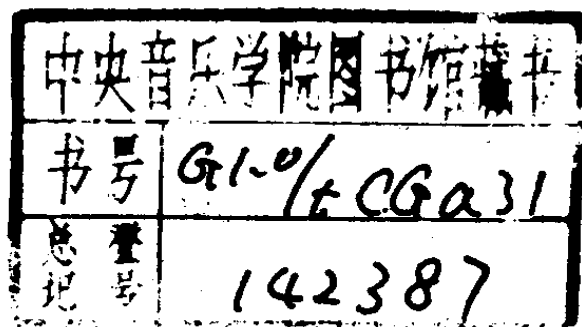 中央音乐学院图书馆藏书
书号 G1-0/tCGa31
总登记号 142387